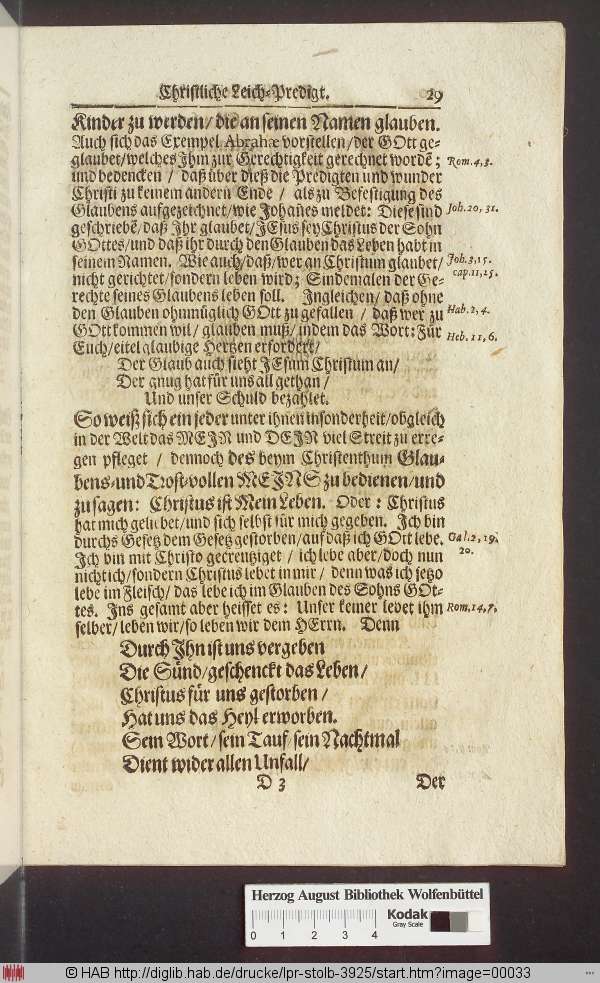 Christliche Leich-Predigt. 29
Kinder zu werden/ die an seinen Namen glauben.
Auch sich das Exempel Abrahæ vorstellen/ der GOtt ge-
glaubet/ welches Ihm zur Gerechtigkeit gerechnet wordē; Rom. 4, 3.
und bedencken / daß über dieß die Predigten und wunder
Christi zu keinem andern Ende / als zu Befestigung des
Glaubens aufgezeichnet/ wie Johañes meldet: Diese sind Joh. 20, 31.
geschriebē/ daß Ihr glaubet/ JEsus sey Christus der Sohn
GOttes/ und daß ihr durch den Glauben das Leben habt in
seinem Namen. Wie auch/ daß/ wer an Christum glaubet/ Joh. 3, 15.
nicht gerichtet/ sondern leben wird; Sindemalen der Ge- cap. 11, 25.
rechte seines Glaubens leben soll. Ingleichen/ daß ohne
den Glauben ohnmüglich GOtt zu gefallen / daß wer zu Hab. 2, 4.
GOtt kommen wil/ glauben muß/ indem das Wort: Für Heb. 11, 6.
Euch/ eitel glaubige Hertzen erfordert/
Der Glaub auch sieht JEsum Christum an/
Der gnug hat für uns all gethan /
Und unser Schuld bezahlet.
So weiß sich ein jeder unter ihnen insonderheit/ obgleich
in der Welt das MEIN und DEIN viel Streit zu erre-
gen pfleget / dennoch des beym Christenthum Glau-
bens- und Trost-vollen MEINS zu bedienen/ und
zu sagen: Christus ist Mein Leben. Oder: Christus
hat mich geliebet/ und sich selbst für mich gegeben. Ich bin
durchs Gesetz dem Gesetz gestorben/ auf daß ich GOtt lebe. Gal. 2, 19.
Ich bin mit Christo gecreutziget / ich lebe aber/ doch nun 20.
nicht ich/ sondern Christus lebet in mir / denn was ich jetzo
lebe im Fleisch/ das lebe ich im Glauben des Sohns GOt-
tes. Ins gesamt aber heisset es: Unser keiner lebet ihm Rom. 14, 7.
selber/ leben wir/ so leben wir dem HErrn. Denn
Durch Ihn ist uns vergeben
Die Sünd/ geschenckt das Leben/
Christus für uns gestorben /
Hat uns das Heyl erworben.
Sein Wort/ sein Tauf/ sein Nachtmal
Dient wider allen Unfall/
D 3 Der
Herzog August Bibliothek Wolfenbüttel
Kodak
Gray Scale
0 1 2 3 4
© HAB http://diglib.hab.de/drucke/lpr-stolb-3925/start.htm?image=00033